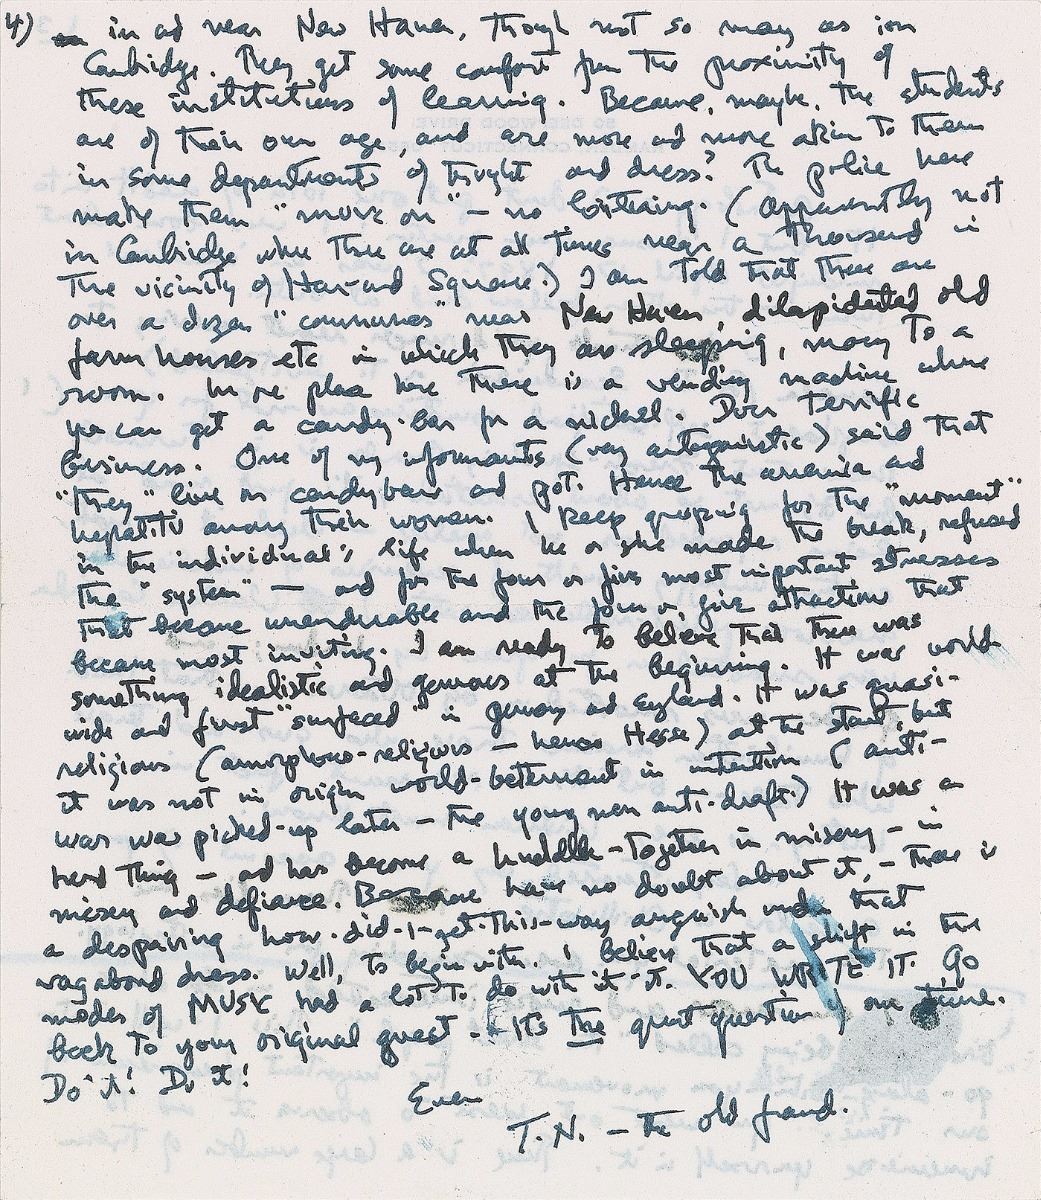 4) in and near New Haven, though not so many as in
Cambridge. They get some comfort from the proximity of
these institutions of learning. Because, maybe, the students
are of their own age, and are more and more akin to them
in some departments of thought and dress? The police here
make them "move on" – no loitering. (Apparently not
in Cambridge where there are at all times near a thousand in
the vicinity of Harvard Square.) I am told that there are
over a dozen "communes" near New Haven, dilapidated old
farm houses etc in which they are sleeping, many to a
room. In one place here there is a vending machine where
you can get a candy-bar for a nickel. Does terrific
business. One of my informants (very antagonistic) said that
"they" live on candybars and pot. Hence the anaemia and
hepatitis among their women. I keep groping for the "moment"
in the individual's life when he or she made the break, refused
the "system" – and for the four or five most important stresses
that became unendurable and the four or five attractions that
became most inviting. I am ready to believe that there was
something idealistic and generous at the beginning. It was world
wide and first "surfaced" in Germany and England. It was quasi-
religious (amorphous-religious – hence Hesse) at the start but
it was not in origin world-betterment in intention (anti-
war was picked-up later – the young men anti-draft.) It was a
herd thing – and has become a huddle-together in misery – in
misery and defiance. have no doubt about it, – there is
a despairing how-did-I-get-this-way anguish under that
vagabond dress. Well, to begin with. I believe that a shift in the
modes of MUSIC had a lot to do with it. YOU WRITE IT. Go
back to your original quest – It's the great question of our time.
Do it! Do it!
Ever
T. N. – the old friend.